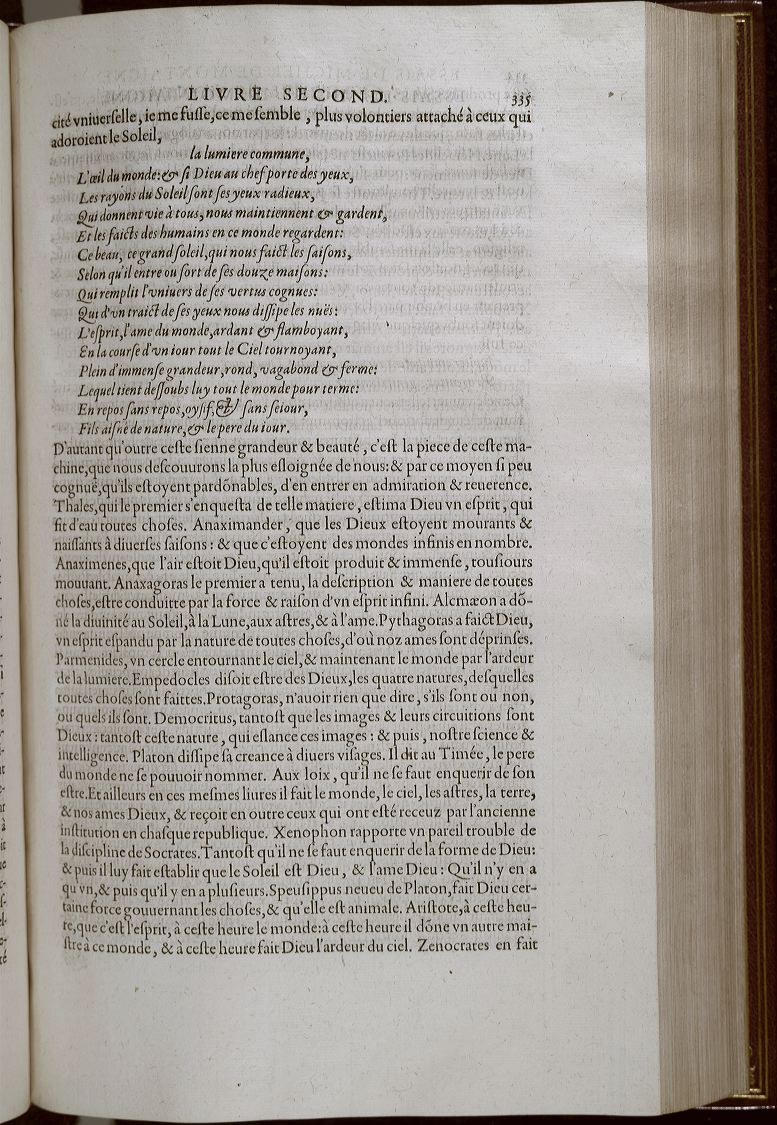 LIVRE SECOND. 335
cité vniuerſelle, ie me fuſſe, ce me ſemble, plus volontiers attaché à ceux qui
adoroient le Soleil,
la lumiere commune,
L'œil du monde: & ſi Dieu au chef porte des yeux,
Les rayons du Soleil ſont ſes yeux radieux,
Qui donnent vie à tous, nous maintiennent & gardent,
Et les faicts des humains en ce monde regardent:
Ce beau, ce grand ſoleil, qui nous faict les ſaiſons,
Selon qu'il entre ou ſort de ſes douze maiſons:
Qui remplit l'vniuers de ſes vertus cognues:
Qui d'vn traict de ſes yeux nous diſſipe les nuës:
L'eſprit, l'ame du monde, ardant & flamboyant,
En la courſe d'vn iour tout le Ciel tournoyant,
Plein d'immenſe grandeur, rond, vagabond & ferme:
Lequel tient deſſoubs luy tout le monde pour terme:
En repos ſans repos, oyſif, & ſans ſeiour,
Fils aiſné de nature, & le pere du iour.
D'autant qu'outre ceſte ſienne grandeur & beauté, c'eſt la piece de ceſte ma-
chine, que nous deſcouurons la plus eſloignée de nous: & par ce moyen ſi peu
cognuë, qu'ils eſtoyent pardōnables, d'en entrer en admiration & reuerence.
Thales, qui le premier s'enqueſta de telle matiere, eſtima Dieu vn eſprit, qui
fit d'eau toutes choſes. Anaximander, que les Dieux eſtoyent mourants &
naiſſants à diuerſes ſaiſons: & que c'eſtoyent des mondes infinis en nombre.
Anaximenes, que l'air eſtoit Dieu, qu'il eſtoit produit & immenſe, touſiours
mouuant. Anaxagoras le premier a tenu, la deſcription & maniere de toutes
choſes, eſtre conduitte par la force & raiſon d'vn eſprit infini. Alcmæon a dō-
né la diuinité au Soleil, à la Lune, aux aſtres, & à l'ame. Pythagoras a faict Dieu,
vn eſprit eſpandu par la nature de toutes choſes, d'où noz ames ſont déprinſes.
Parmenides, vn cercle entournant le ciel, & maintenant le monde par l'ardeur
de la lumiere. Empedocles diſoit eſtre des Dieux, les quatre natures, deſquelles
toutes choſes ſont faittes. Protagoras, n'auoir rien que dire, s'ils ſont ou non,
ou quels ils ſont. Democritus, tantoſt que les images & leurs circuitions ſont
Dieux: tantoſt ceſte nature, qui eſlance ces images: & puis, noſtre ſcience &
intelligence. Platon diſſipe ſa creance à diuers viſages. Il dit au Timée, le pere
du monde ne ſe pouuoir nommer. Aux loix, qu'il ne ſe faut enquerir de ſon
eſtre. Et ailleurs en ces meſmes liures il fait le monde, le ciel, les aſtres, la terre,
& nos ames Dieux, & reçoit en outre ceux qui ont eſté receuz par l'ancienne
inſtitution en chaſque republique. Xenophon rapporte vn pareil trouble de
la diſcipline de Socrates. Tantoſt qu'il ne ſe faut enquerir de la forme de Dieu:
& puis il luy fait eſtablir que le Soleil eſt Dieu, & l'ame Dieu: Qu'il n'y en a
qu'vn, & puis qu'il y en a pluſieurs. Speuſippus neueu de Platon, fait Dieu cer-
taine force gouuernant les choſes, & qu'elle eſt animale. Ariſtote, à ceſte heu-
re, que c'eſt l'eſprit, à ceſte heure le monde: à ceſte heure il dōne vn autre mai-
ſtre à ce monde, & à ceſte heure fait Dieu l'ardeur du ciel. Zenocrates en fait